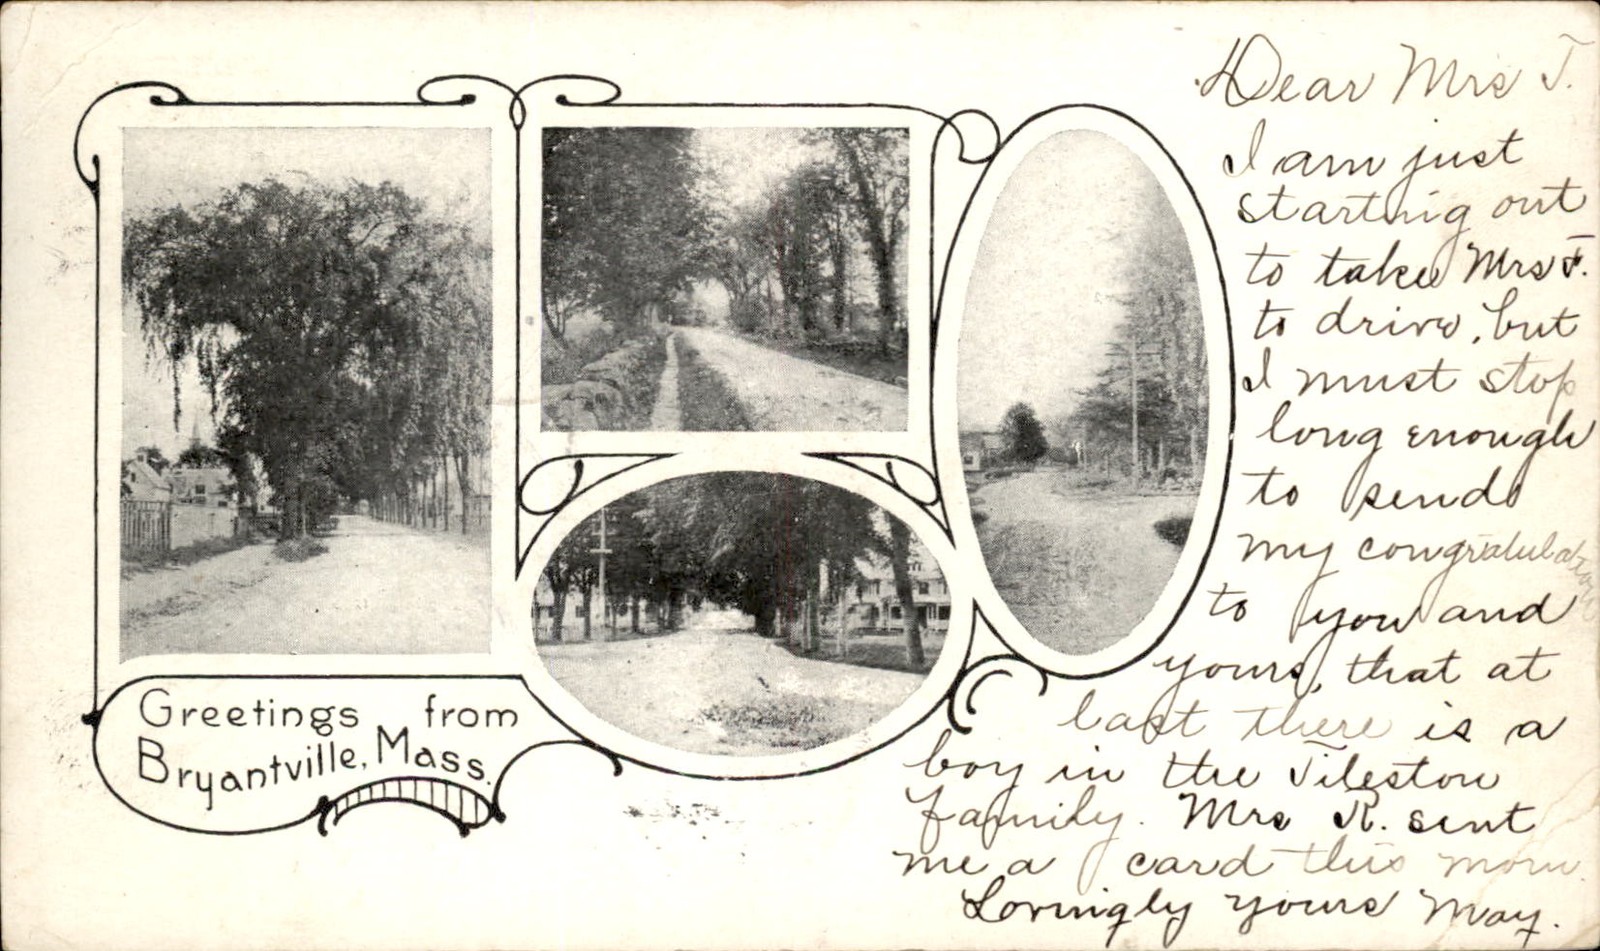 Greetings from
Bryantville, Mass.
Dear Mrs T.
I am just
starting out
to take Mrs F.
to drive, but
I must stop
long enough
to send
my congratulations
to you and
yours, that at
last there is a
boy in the Tileston
family. Mrs R. sent
me a card this morn.
Lovingly yours May.